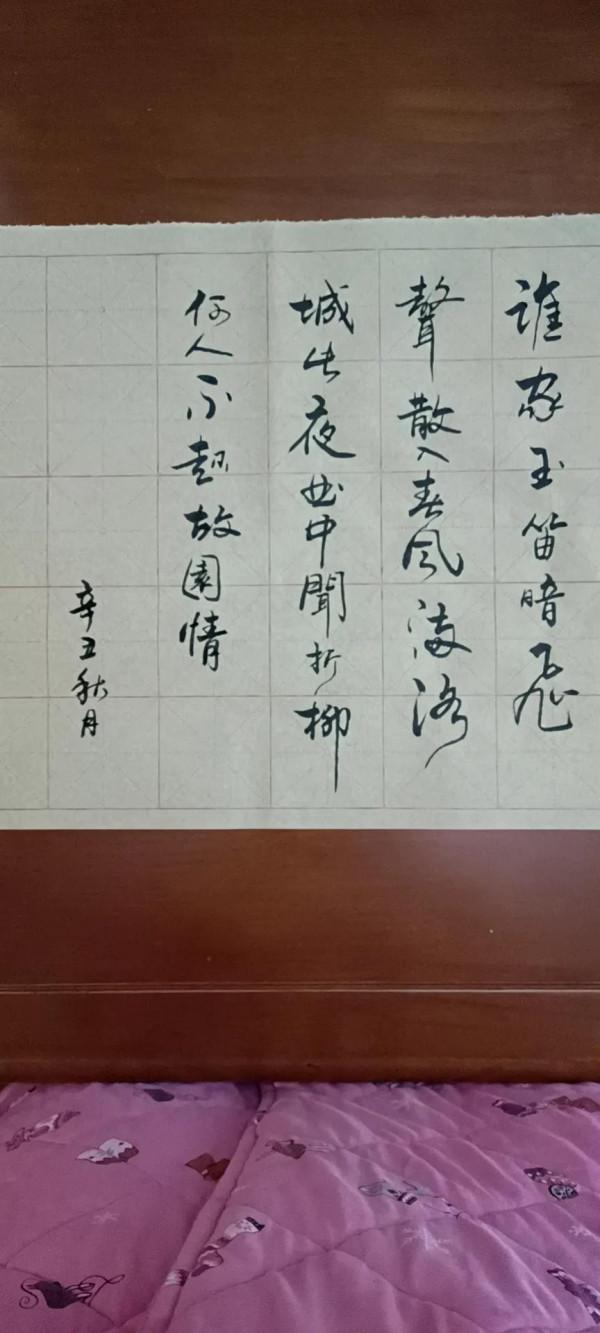 誰家玉笛暗飛
聲散入春风滿洛
城此夜曲中聞折柳
何人不起故園情
辛丑秋月